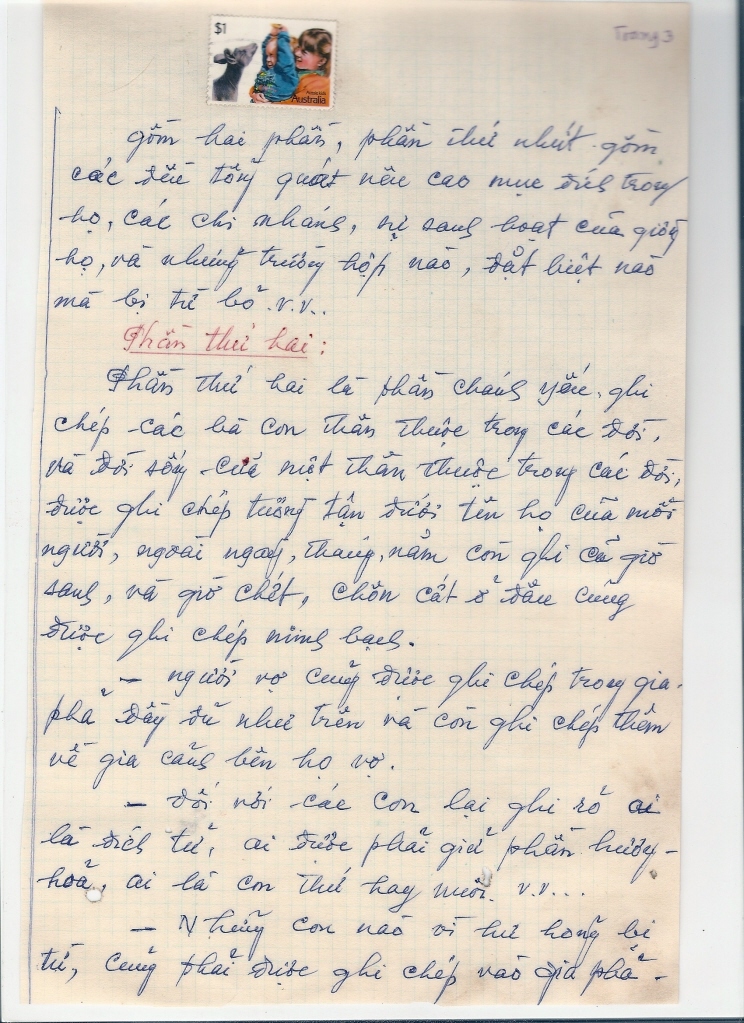 Trang 3
$1
Australia
gồm hai phần, phần thứ nhứt gồm
các đều tổng quát nêu cao mục đích trong
họ, các chi nhánh, sự sanh hoạt của giòng
họ, và những trường hợp nào, đặt biệt nào
mà bị từ bỏ v.v..
Phần thứ hai :
Phần thứ hai là phần chánh yếu, ghi
chép các bà con thân thuộc trong các đời,
và đời sống của một thân thuộc trong các đời,
được ghi chép tường tận dưới tên họ của mỗi
người, ngoài ngày, tháng, năm còn ghi cả giờ
sanh, và giờ chết, chôn cất ở đâu cũng
được ghi chép minh bạch.
– người vợ cũng được ghi chép trong gia
phả đầy đủ như trên và còn ghi chép thêm
về gia cảnh bên họ vợ.
– đối với các con lại ghi rỏ ai
là đích tử, ai được phải giử phần hương-
hoả, ai là con thứ hay nuôi. v.v...
– Những con nào vì hư hỏng bi
từ, cũng phải được ghi chép vào gia phả -